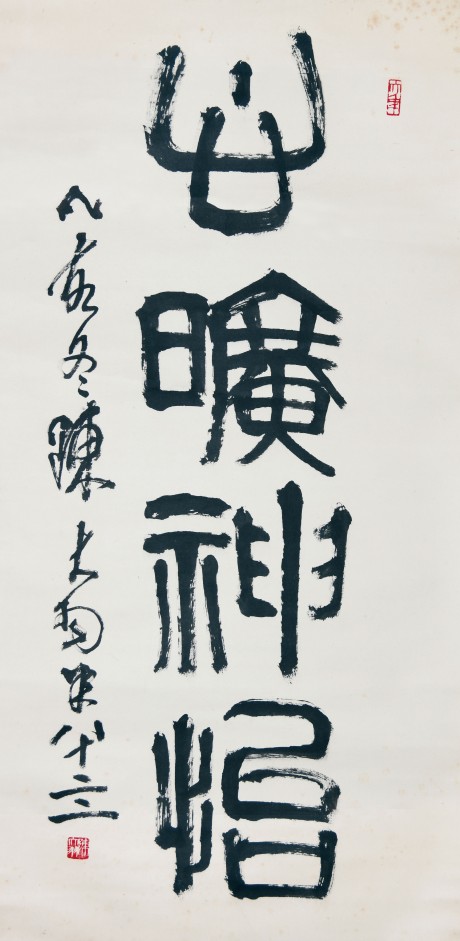 心曠神怡
乙亥冬陳大羽年八十三